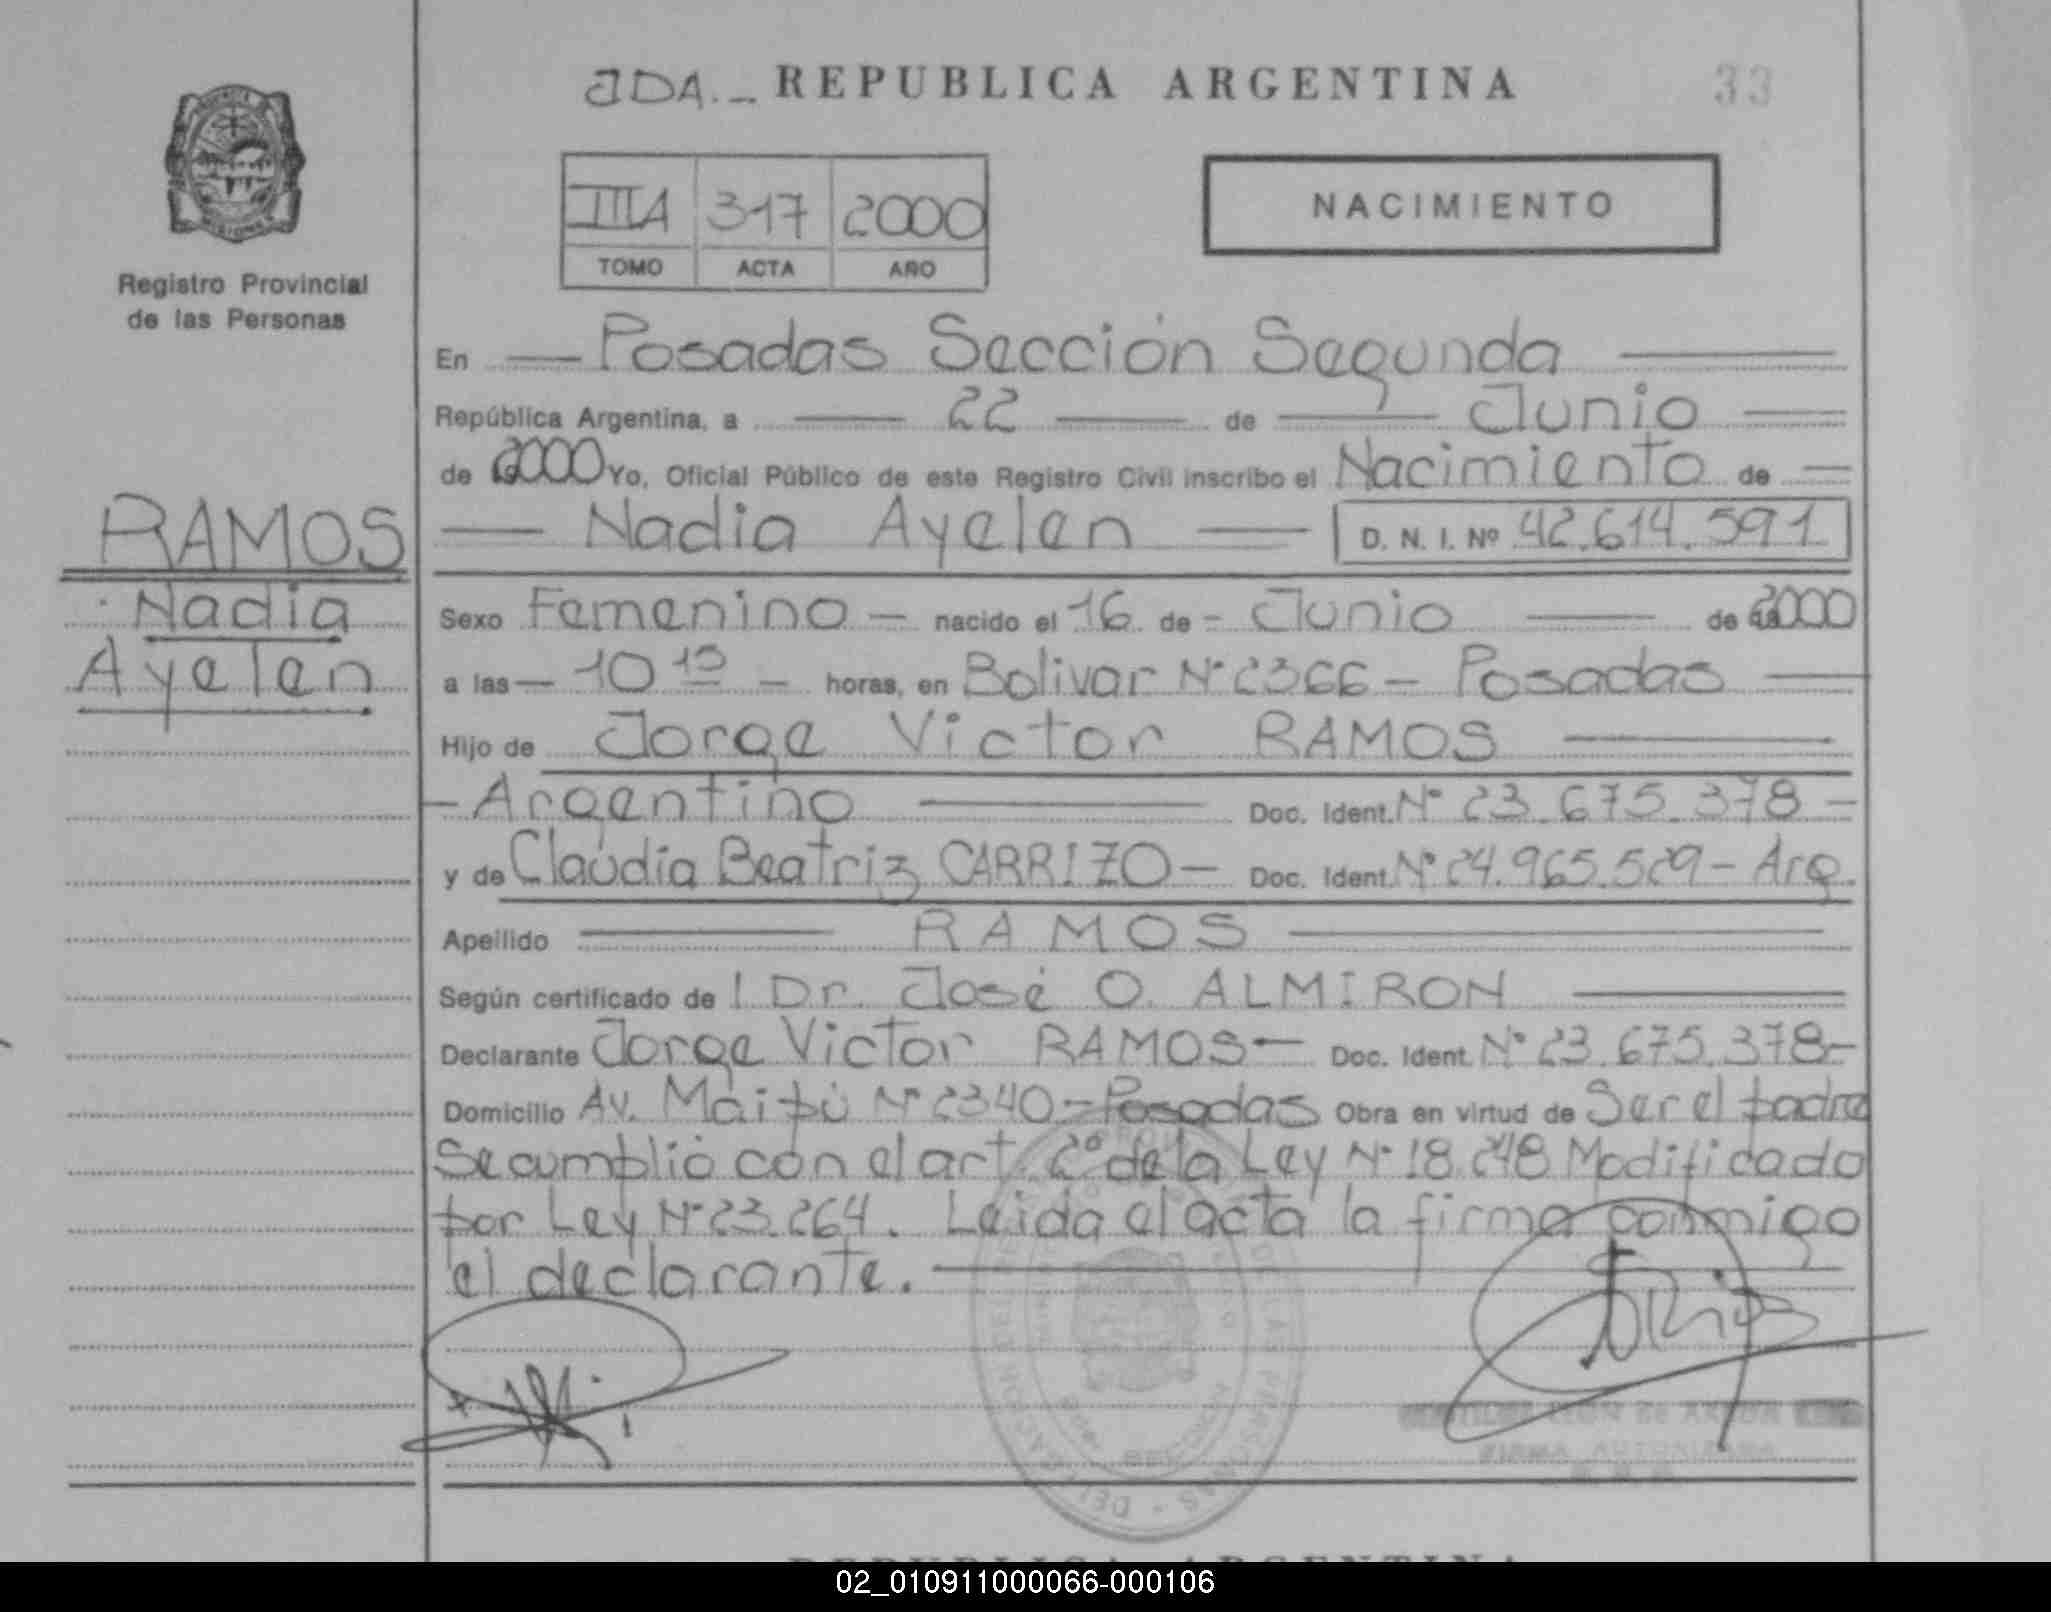 JDA.- REPUBLICA ARGENTINA 33
IIIA 317 2000
TOMO ACTA AÑO
NACIMIENTO
Registro Provincial
de las Personas
RAMOS
Nadia
Ayelen
En Posadas Sección Segunda
República Argentina, a 22 de Junio
de 2000 Yo, Oficial Público de este Registro Civil inscribo el Nacimiento de
Nadia Ayelen D. N. I. Nº 42.614.591
Sexo Femenino - nacido el 16 de - Junio de 2000
a las - 10 15 - horas, en Bolivar Nº 2366 - Posadas
Hijo de Jorge Victor RAMOS
- Argentino Doc. Ident. Nº 23.675.378 -
y de Claudia Beatriz CARRIZO - Doc. Ident. Nº 24.965.529 - Arg.
Apellido RAMOS
Según certificado de l Dr. José O. ALMIRON
Declarante Jorge Victor RAMOS - Doc. Ident. Nº 23.675.378 -
Domicilio Av. Maipú Nº 2340 - Posadas Obra en virtud de Ser el padre
Se cumplió con el art. 2º de la Ley Nº 18.248 Modificado
por Ley Nº 23.264. Leida el acta la firma conmigo
el declarante.
FIRMA AUTORIZADA
REPUBLICA ARGENTINA
02_010911000066-000106